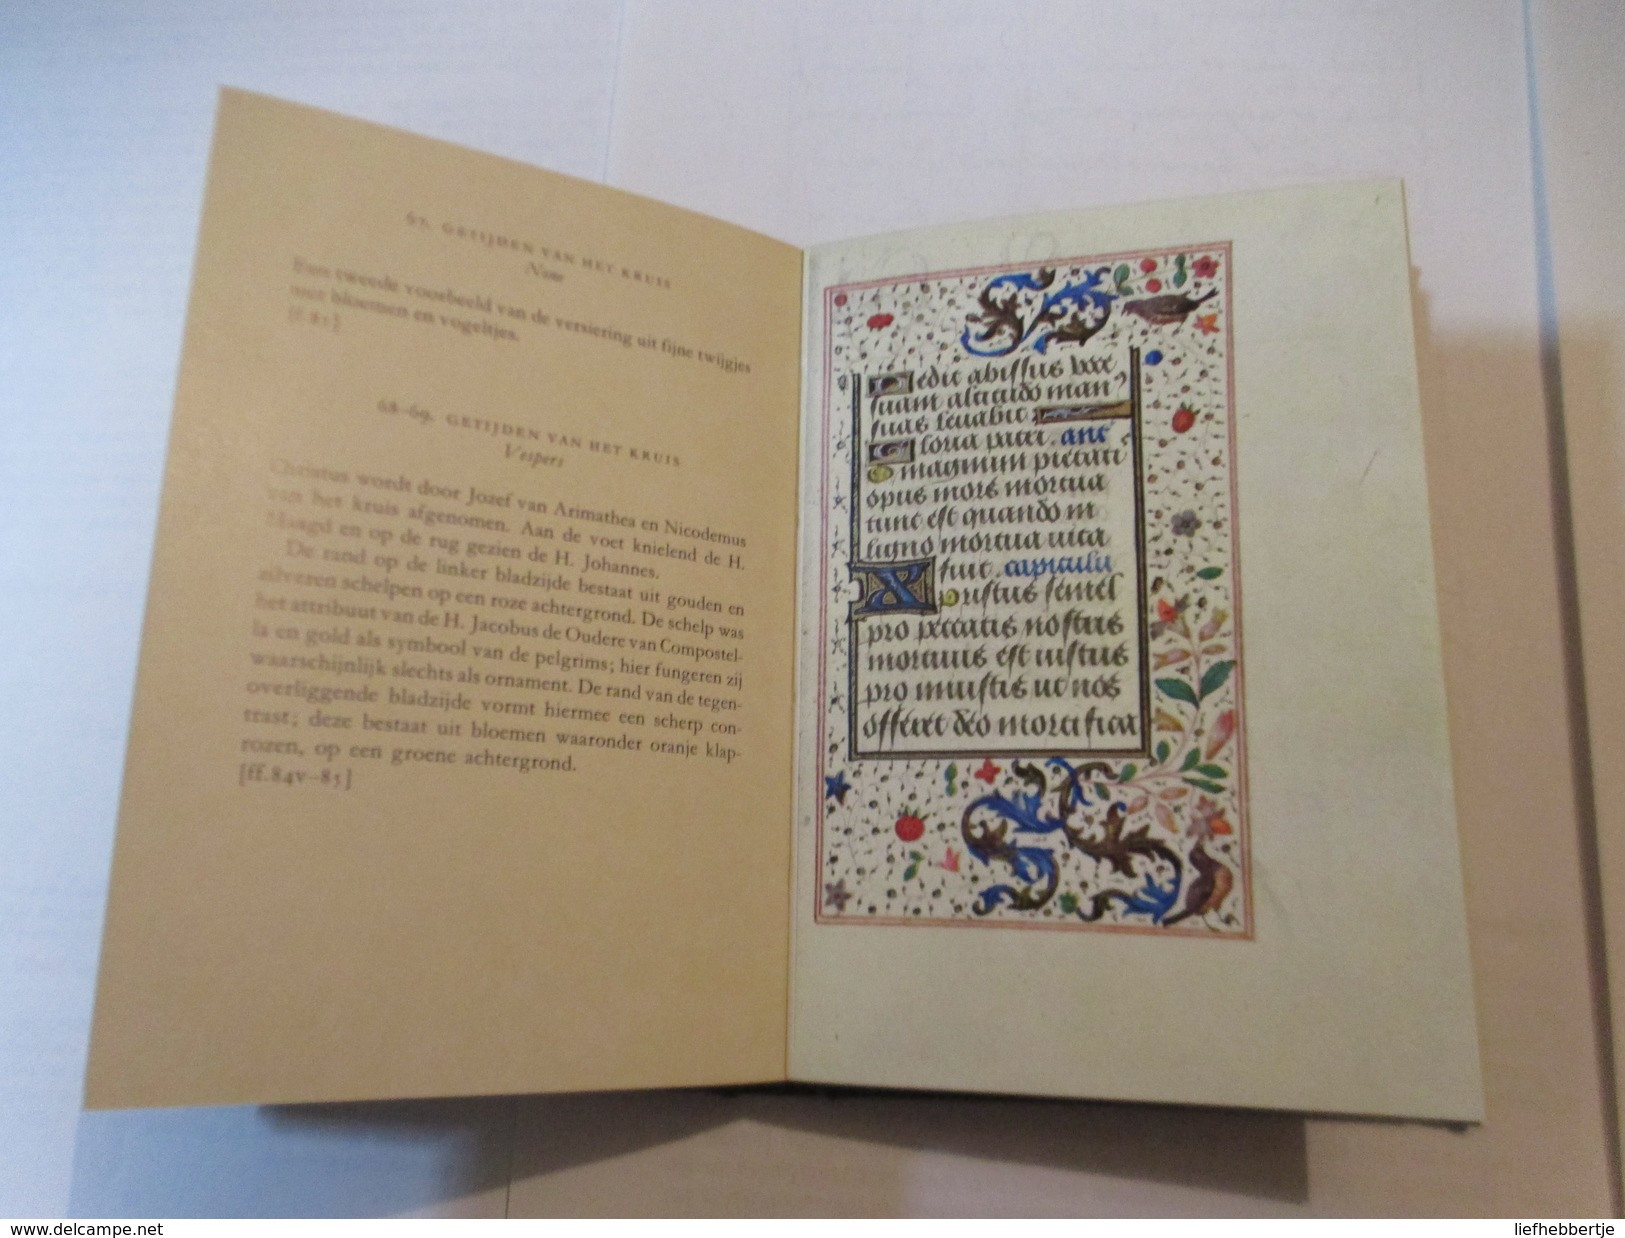 67. GETIJDEN VAN HET KRUIS
None
Een tweede voorbeeld van de versiering uit fijne twijgjes
met bloemen en vogeltjes.
[f.83]
68–69. GETIJDEN VAN HET KRUIS
Vespers
Christus wordt door Jozef van Arimathea en Nicodemus
van het kruis afgenomen. Aan de voet knielend de H.
Maagd en op de rug gezien de H. Johannes.
De rand op de linker bladzijde bestaat uit gouden en
zilveren schelpen op een roze achtergrond. De schelp was
het attribuut van de H. Jacobus de Oudere van Compostel-
la en gold als symbool van de pelgrims; hier fungeren zij
waarschijnlijk slechts als ornament. De rand van de tegen-
overliggende bladzijde vormt hiermee een scherp con-
trast; deze bestaat uit bloemen waaronder oranje klap-
rozen, op een groene achtergrond.
[ff.84v–85]
dedit abissus vocē
suam altitudo man
suas levabit
loria patri. ant
magnum pietati
opus mors mortua
tunc est quando in
ligno mortua vita
fuit. capitulū
X pristus semel
pro peccatis nostris
mortuus est iustus
pro iniustis ut nos
offeret deo mortifica
www.delcampe.net
liefhebbertje